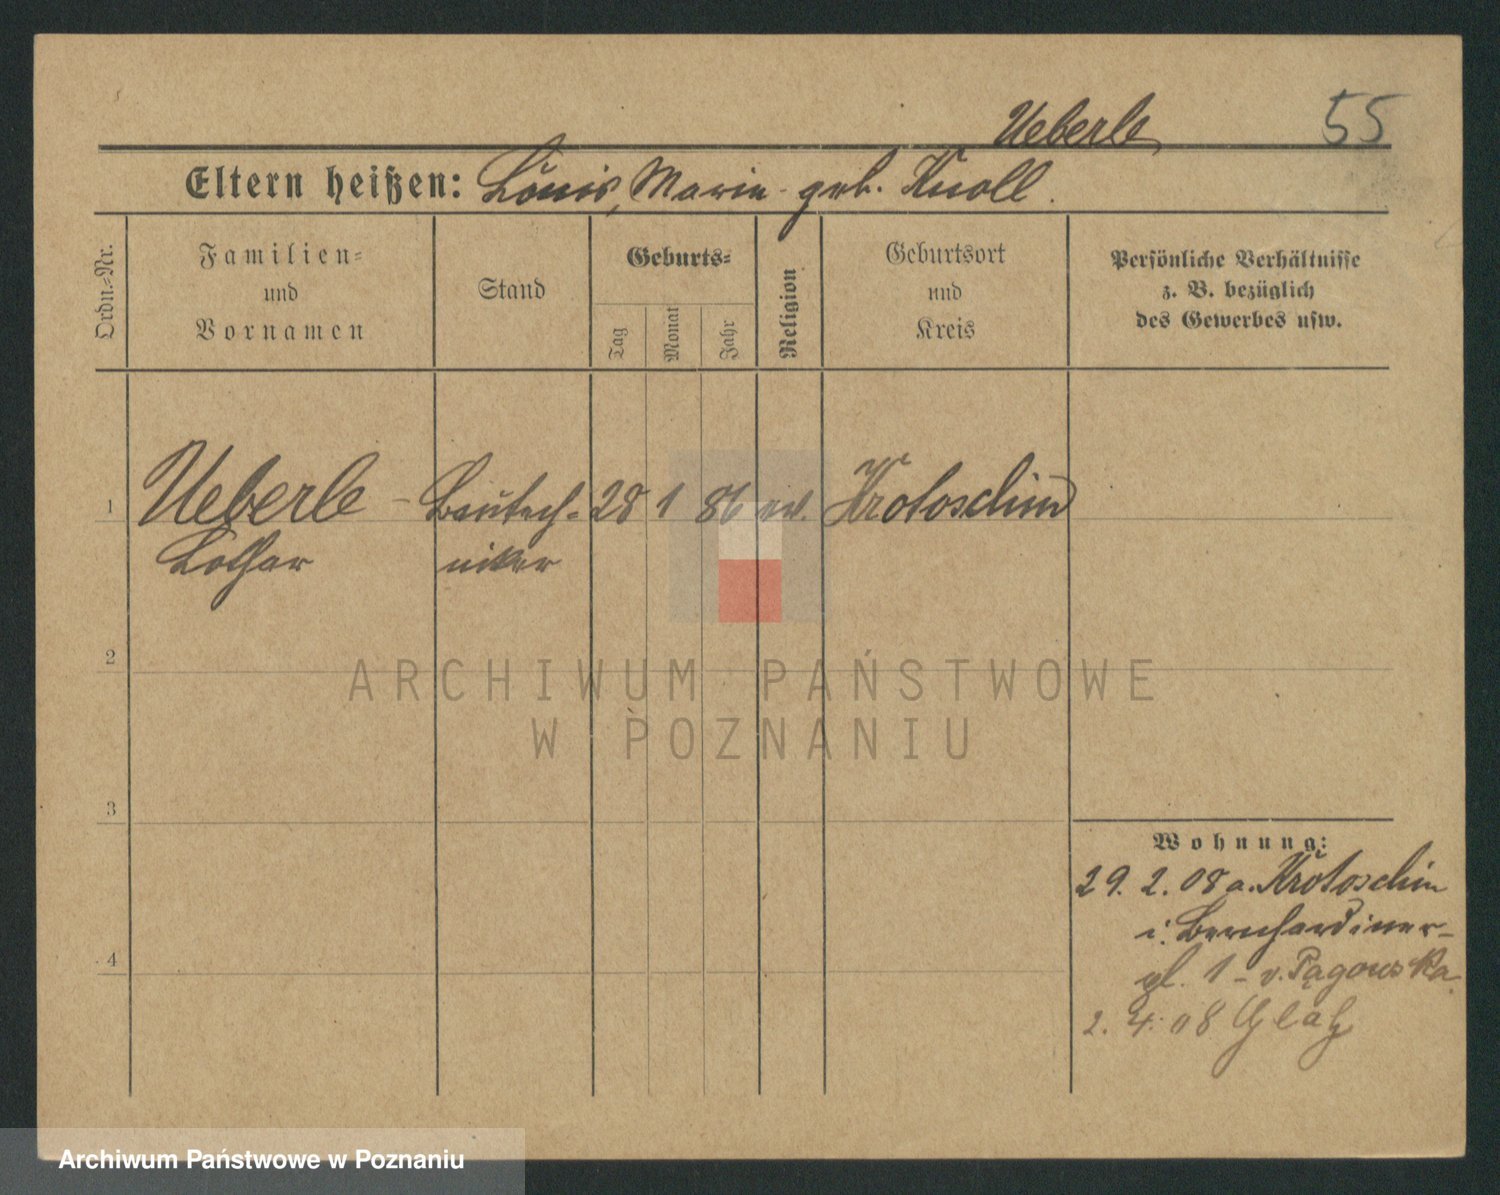 Ueberle
55
Eltern heißen: Louis, Marie geb. Knoll.
Ordn.-Nr.
Familien-
und
Vornamen
Stand
Geburts-
Tag
Monat
Jahr
Religion
Geburtsort
und
Kreis
Persönliche Verhältnisse
z. B. bezüglich
des Gewerbes usw.
1 Ueberle - Bautech- 28 1 86 ev. Krotoschin
Lothar niker
2
3
4
Wohnung:
29. 2. 08 a. Krotoschin
i. Bernhardiner-
pl. 1 - v. Pągowska
2. 4. 08 Glatz
ARCHIWUM PAŃSTWOWE
W POZNANIU
Archiwum Państwowe w Poznaniu